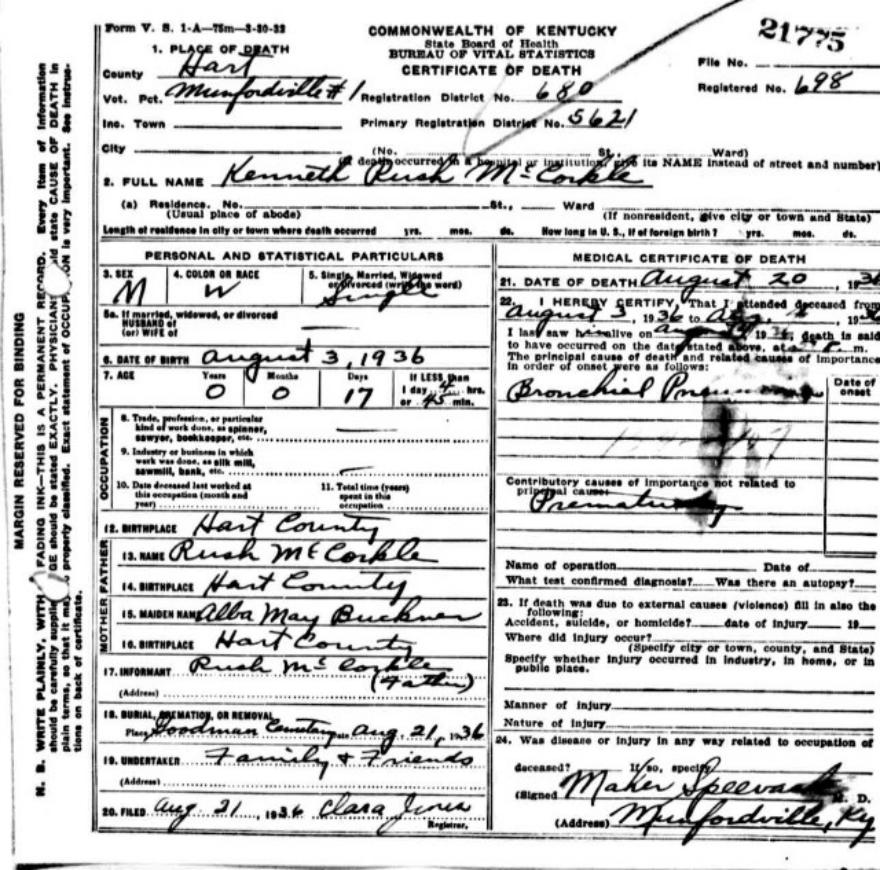 Form V. S. 1-A—75m—3-30-32
COMMONWEALTH OF KENTUCKY
State Board of Health
BUREAU OF VITAL STATISTICS
CERTIFICATE OF DEATH
21775
File No.
Registered No. 698
1. PLACE OF DEATH
County Hart
Vot. Pct. Munfordville #1 Registration District No. 680
Inc. Town Primary Registration District No. 5621
City (No. St., Ward)
(If death occurred in a hospital or institution, give its NAME instead of street and number)
2. FULL NAME Kenneth Rush McCorkle
(a) Residence. No. St., Ward
(Usual place of abode) (If nonresident, give city or town and State)
Length of residence in city or town where death occurred yrs. mos. ds. How long in U. S., if of foreign birth? yrs. mos. ds.
PERSONAL AND STATISTICAL PARTICULARS
3. SEX 4. COLOR OR RACE 5. Single, Married, Widowed
or Divorced (write the word)
M W Single
5a. If married, widowed, or divorced
HUSBAND of
(or) WIFE of
6. DATE OF BIRTH August 3, 1936
7. AGE Years Months Days If LESS than
0 0 17 1 day 4 hrs.
or 45 min.
OCCUPATION
8. Trade, profession, or particular
kind of work done, as spinner,
sawyer, bookkeeper, etc.
9. Industry or business in which
work was done, as silk mill,
sawmill, bank, etc.
10. Date deceased last worked at
this occupation (month and
year)
11. Total time (years)
spent in this
occupation
12. BIRTHPLACE Hart County
FATHER
13. NAME Rush McCorkle
14. BIRTHPLACE Hart County
MOTHER
15. MAIDEN NAME Alba May Buckner
16. BIRTHPLACE Hart County
17. INFORMANT Rush McCorkle
(Address) (Father)
18. BURIAL, CREMATION, OR REMOVAL
Place Goodman Cemetery Date Aug. 21, 1936
19. UNDERTAKER Family & Friends
(Address)
20. FILED Aug 21, 1936 Clara Jones
Registrar.
MEDICAL CERTIFICATE OF DEATH
21. DATE OF DEATH August 20, 1936
22. I HEREBY CERTIFY, That I attended deceased from
August 3, 1936 to , 19
I last saw him alive on August 19 death is said
to have occurred on the date stated above, at m.
The principal cause of death and related causes of importance
in order of onset were as follows:
Date of
onset
Bronchial Pneumonia
Contributory causes of importance not related to
principal cause:
Prematurity
Name of operation Date of
What test confirmed diagnosis? Was there an autopsy?
23. If death was due to external causes (violence) fill in also the
following:
Accident, suicide, or homicide? date of injury 19
Where did injury occur?
(Specify city or town, county, and State)
Specify whether injury occurred in industry, in home, or in
public place.
Manner of injury
Nature of injury
24. Was disease or injury in any way related to occupation of
deceased? If so, specify
(Signed Maker Speevack M. D.
(Address) Munfordville, Ky
MARGIN RESERVED FOR BINDING
N. B. WRITE PLAINLY, WITH FADING INK—THIS IS A PERMANENT RECORD. Every item of information
should be carefully supplied. AGE should be stated EXACTLY. PHYSICIANS should state CAUSE OF DEATH in
plain terms, so that it may properly classified. Exact statement of OCCUPATION is very important. See instruc-
tions on back of certificate.